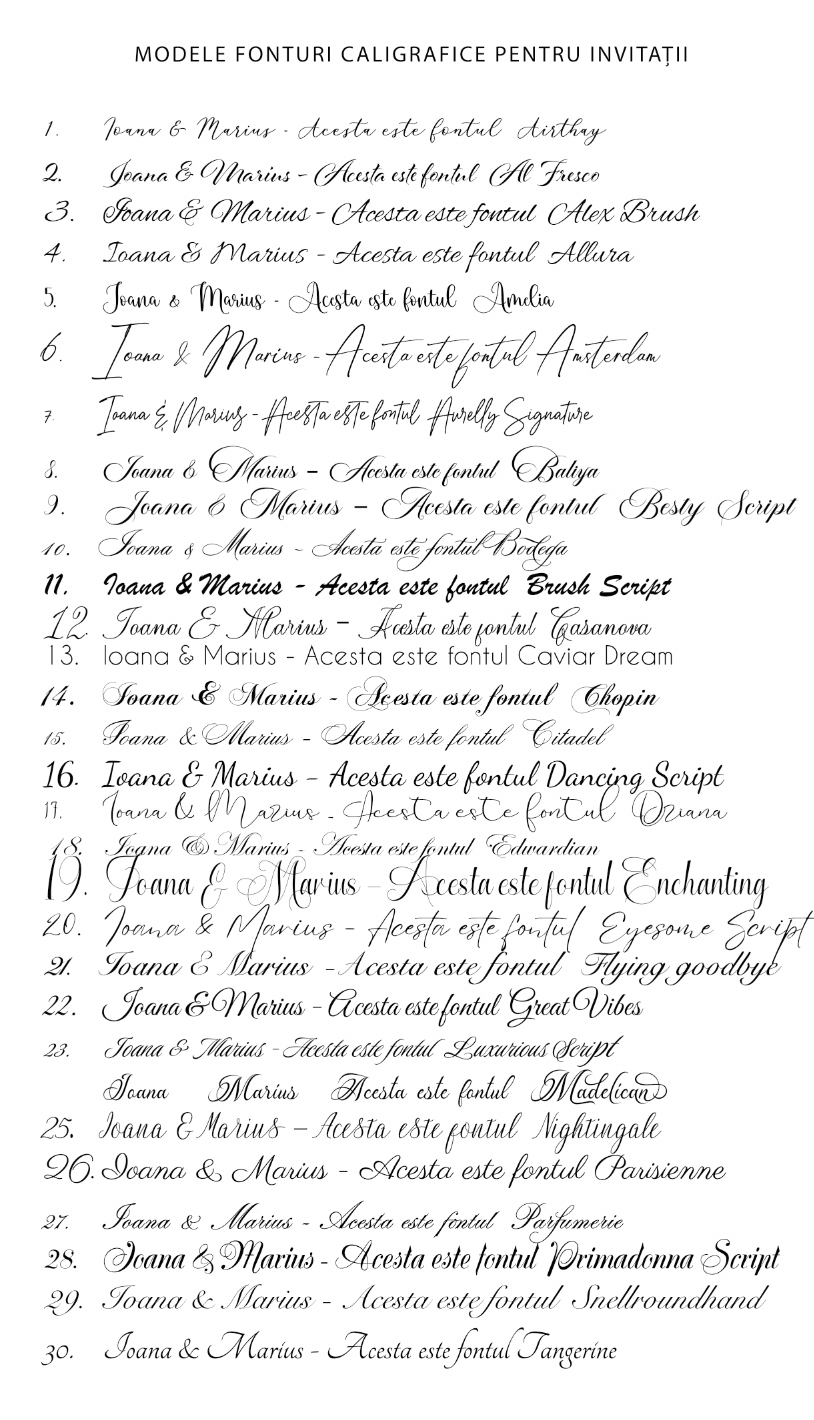 MODELE FONTURI CALIGRAFICE PENTRU INVITAȚII
1. Ioana & Marius - Acesta este fontul Airthay
2. Ioana & Marius - Acesta este fontul Al Fresco
3. Ioana & Marius - Acesta este fontul Alex Brush
4. Ioana & Marius - Acesta este fontul Allura
5. Ioana & Marius - Acesta este fontul Amelia
6. Ioana & Marius - Acesta este fontul Amsterdam
7. Ioana & Marius - Acesta este fontul Aurelly Signature
8. Ioana & Marius - Acesta este fontul Baliya
9. Ioana & Marius - Acesta este fontul Besty Script
10. Ioana & Marius - Acesta este fontul Bodega
11. Ioana & Marius - Acesta este fontul Brush Script
12. Ioana & Marius - Acesta este fontul Casanova
13. Ioana & Marius - Acesta este fontul Caviar Dream
14. Ioana & Marius - Acesta este fontul Chopin
15. Ioana & Marius - Acesta este fontul Citadel
16. Ioana & Marius - Acesta este fontul Dancing Script
17. Ioana & Marius - Acesta este fontul Dziana
18. Ioana & Marius - Acesta este fontul Edwardian
19. Ioana & Marius - Acesta este fontul Enchanting
20. Ioana & Marius - Acesta este fontul Eyesome Script
21. Ioana & Marius - Acesta este fontul Flying goodbye
22. Ioana & Marius - Acesta este fontul Great Vibes
23. Ioana & Marius - Acesta este fontul Luxurious Script
Ioana Marius Acesta este fontul Madelican
25. Ioana & Marius - Acesta este fontul Nightingale
26. Ioana & Marius - Acesta este fontul Parisienne
27. Ioana & Marius - Acesta este fontul Parfumerie
28. Ioana & Marius - Acesta este fontul Primadonna Script
29. Ioana & Marius - Acesta este fontul Snellroundhand
30. Ioana & Marius - Acesta este fontul Tangerine